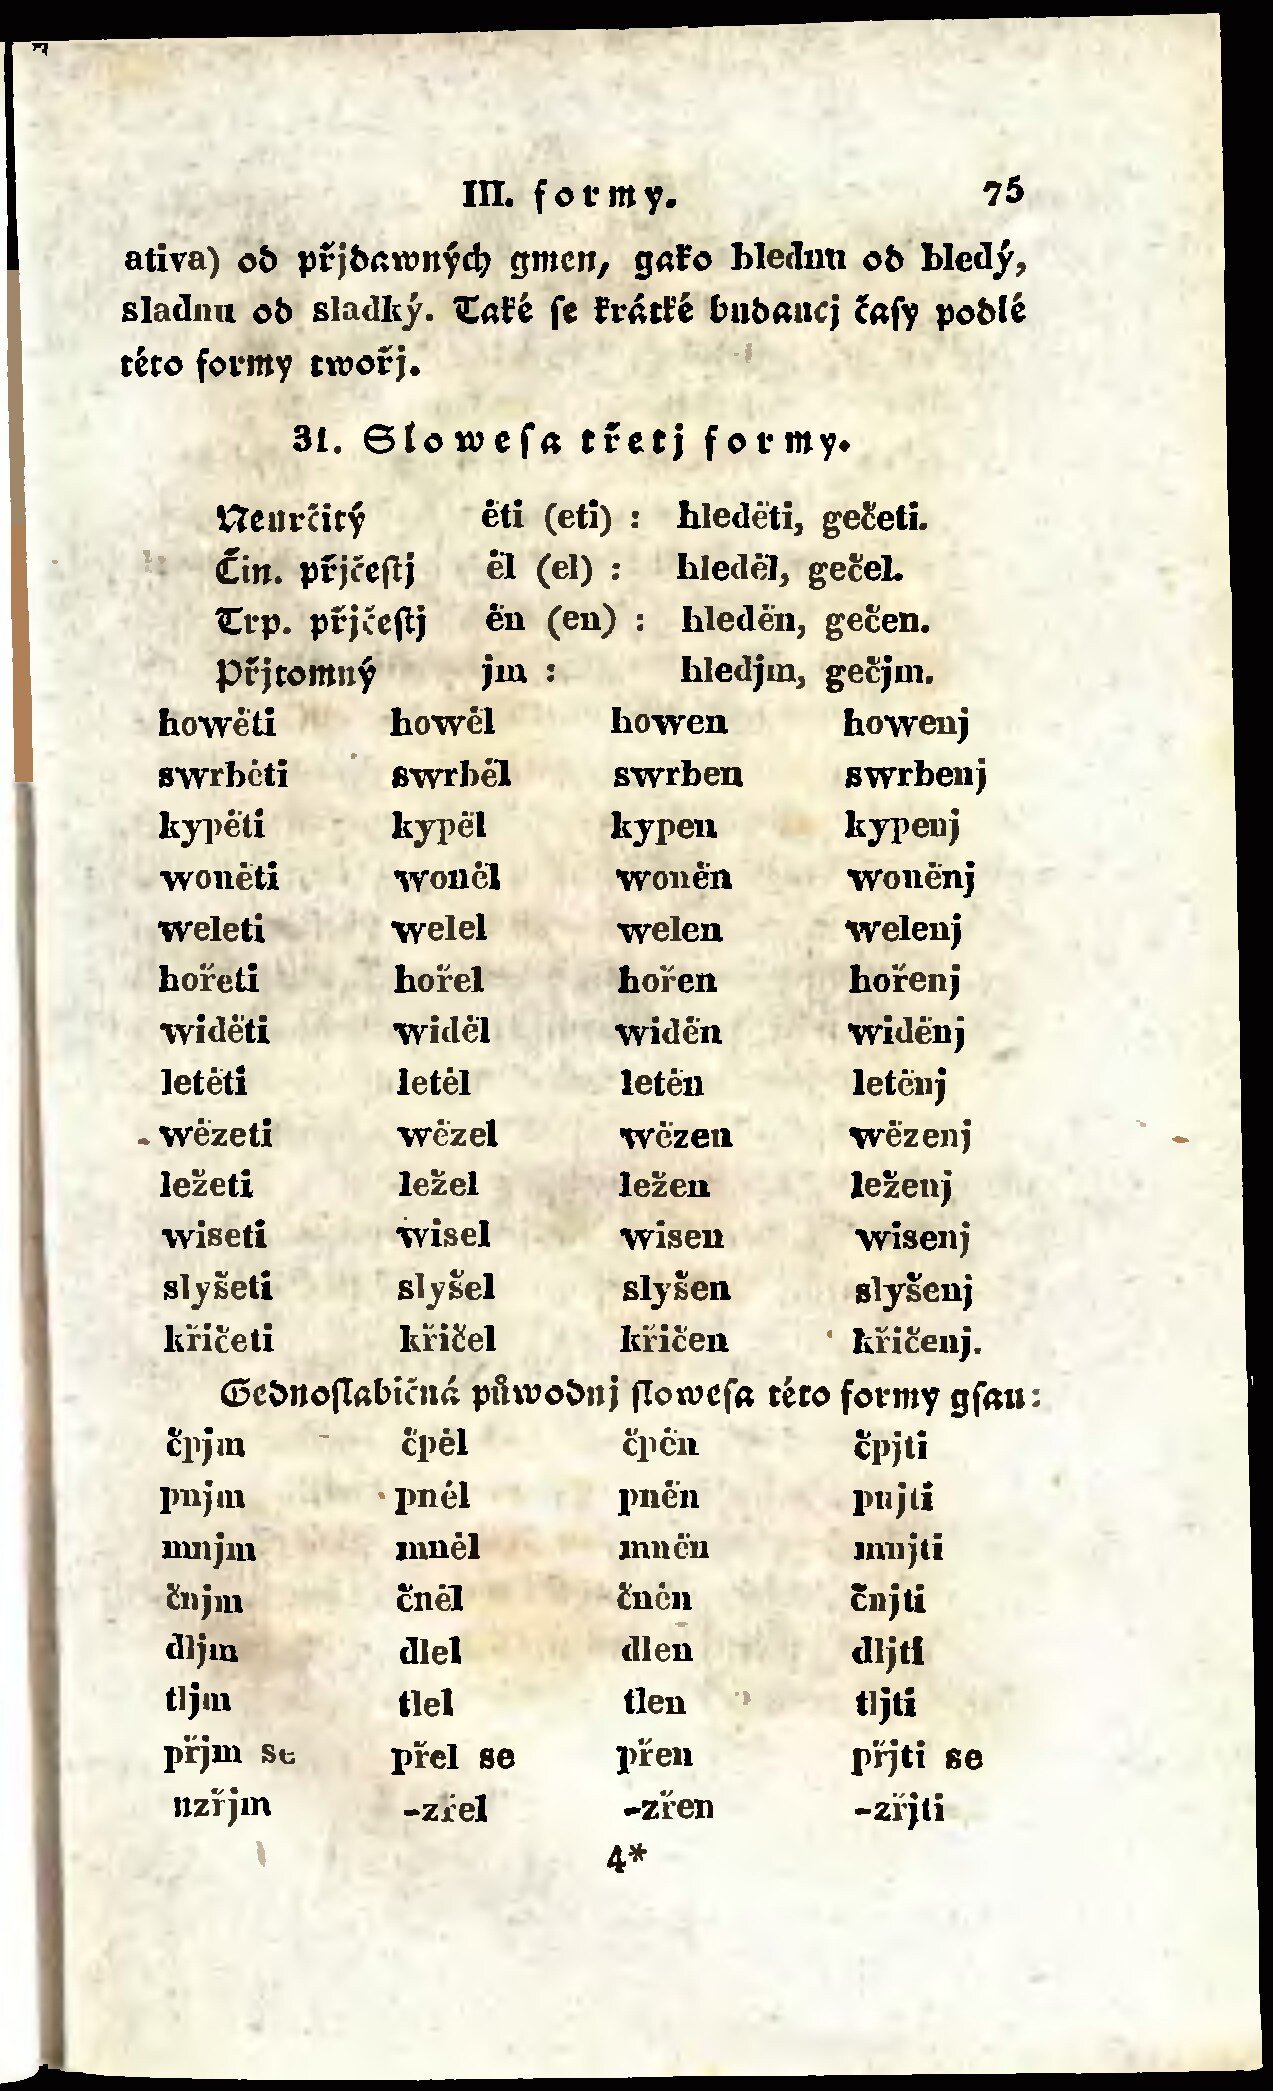 III. formy. 75
ativa) od přjdawných gmen, gako blednu od bledý,
sladnu od sladký. Také se krátké budaucj časy podlé
této formy twořj.
31. Slowesa třetj formy.
Neurčitý ěti (eti) : hleděti, gečeti.
Čin. přjčestj ěl (el) : hleděl, gečel.
Trp. přjčestj ěn (en) : hleděn, gečen.
Přjtomný jm : hledjm, gečjm.
howěti howěl howen howenj
swrběti swrběl swrben swrbenj
kypěti kypěl kypen kypenj
woněti woněl woněn woněnj
weleti welel welen welenj
hořeti hořel hořen hořenj
widěti widěl widěn widěnj
letěti letěl letěn letěnj
wězeti wězel wězen wězenj
ležeti ležel ležen leženj
wiseti wisel wisen wisenj
slyšeti slyšel slyšen slyšenj
křičeti křičel křičen křičenj.
Gednoslabičná půwodnj slowesa této formy gsau:
čpjm čpěl čpěn čpjti
pnjm pněl pněn pnjti
mnjm mněl mněn mnjti
čnjm čněl čněn čnjti
dljm dlel dlen dljti
tljm tlel tlen tljti
přjm se přel se přen přjti se
uzřjm -zřel -zřen -zřjti
4*